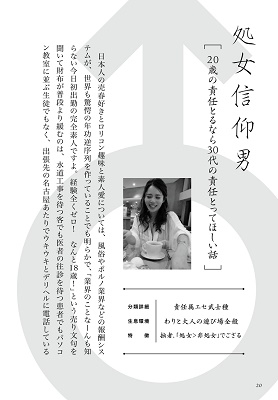 処女信仰男
[20歳の責任とるなら30代の責任とってほしい話]
分類詳細 責任属エセ武士種
生息環境 わりと大人の遊び場全般
特徴 拙者、「処女>非処女」でござる
日本人の売春好きとロリコン趣味と素人愛については、風俗やポルノ業界などの報酬シス
テムが、世界も驚愕の年功逆序列を作っていることでも明らかで、「業界のことなーんも知
らない今日初出勤の完全素人ですよ。経験全くゼロ! なんと18歳!」という売り文句を
聞いて財布が普段より緩むのは、水道工事を待つ客でも医者の往診を待つ患者でもパソコ
ン教室に並ぶ生徒でもなく、出張先の名古屋あたりでウキウキとデリヘルに電話している
20